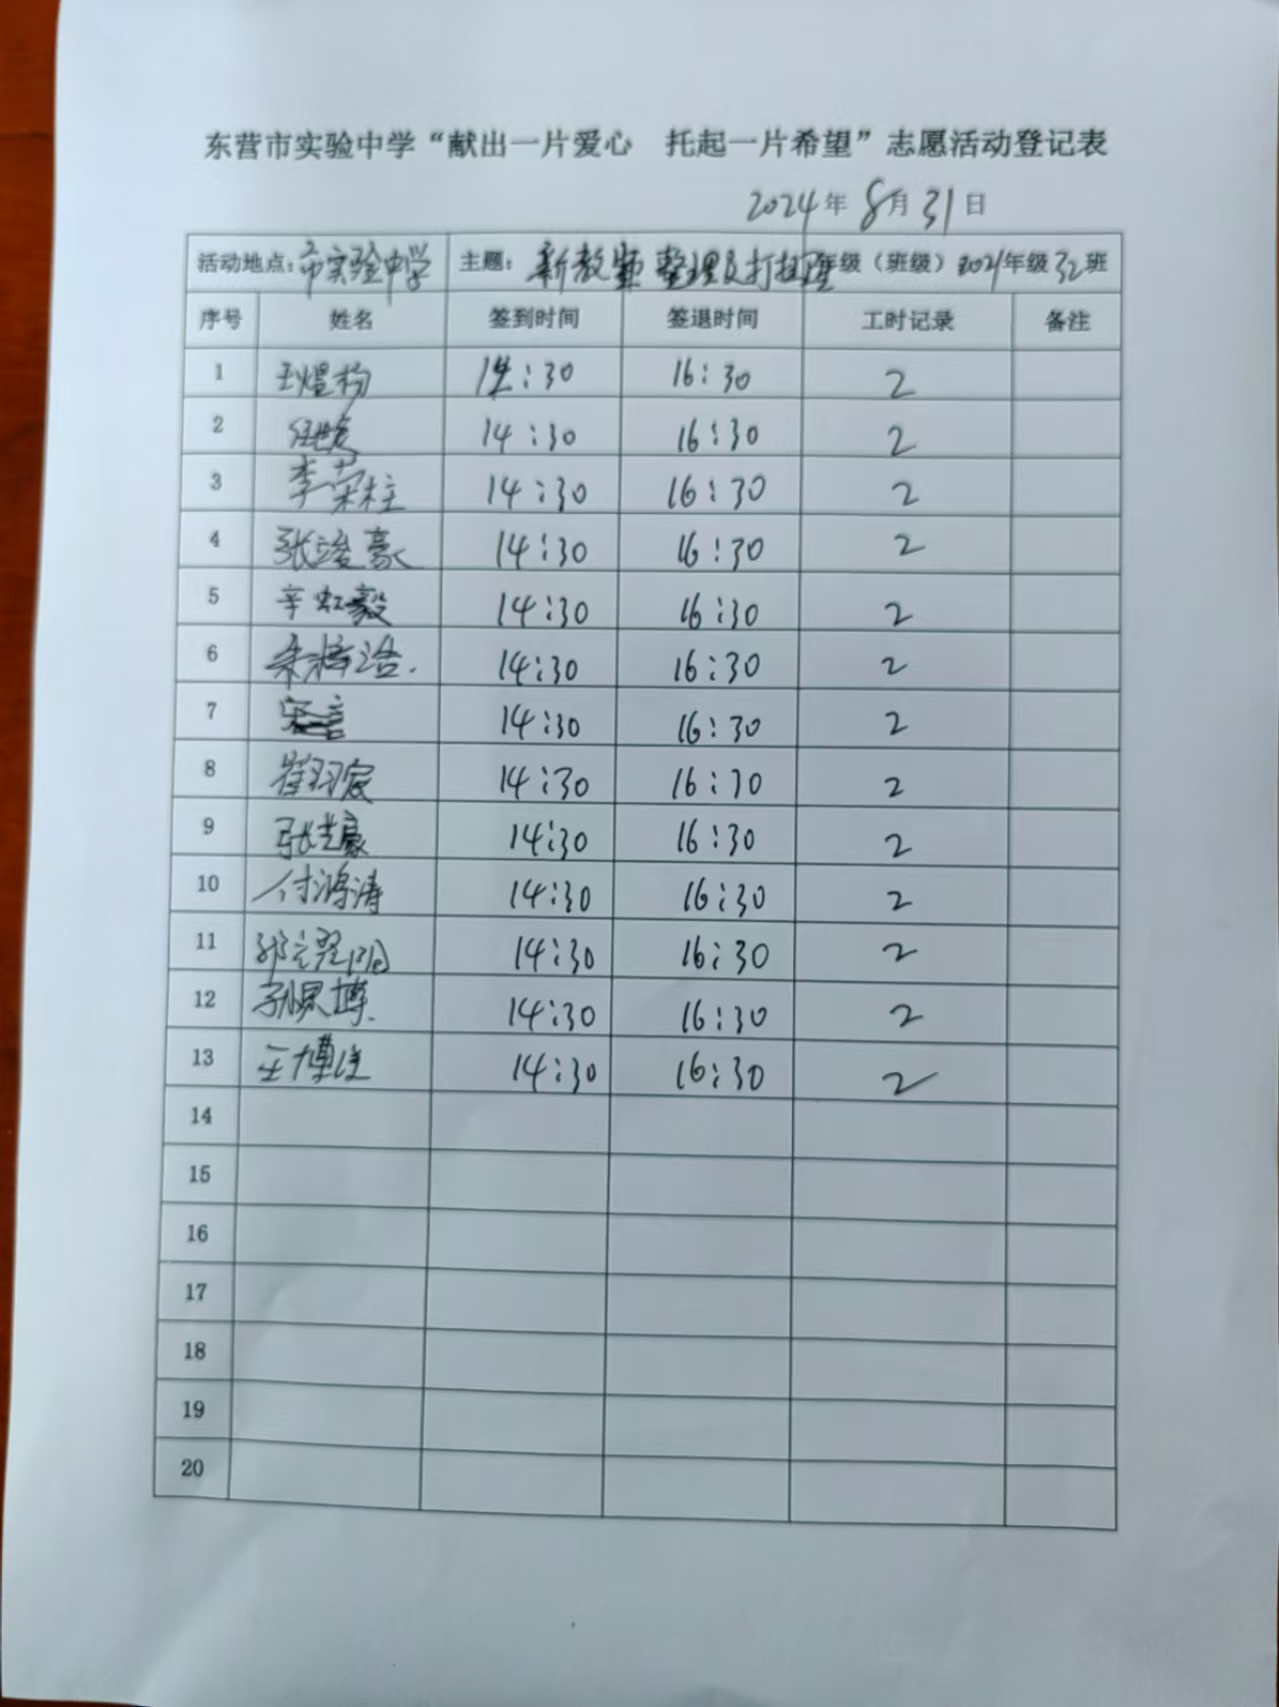 东营市实验中学“献出一片爱心 托起一片希望”志愿活动登记表
2024年8月31日
活动地点：市实验中学 主题：新教室整理及打扫 年级（班级）2024年级32班
序号 姓名 签到时间 签退时间 工时记录 备注
1 14:30 16:30 2
2 14:30 16:30 2
3 李荣柱 14:30 16:30 2
4 张竣豪 14:30 16:30 2
5 辛虹毅 14:30 16:30 2
6 14:30 16:30 2
7 14:30 16:30 2
8 崔羽宸 14:30 16:30 2
9 14:30 16:30 2
10 付鸿涛 14:30 16:30 2
11 14:30 16:30 2
12 14:30 16:30 2
13 14:30 16:30 2
14
15
16
17
18
19
20